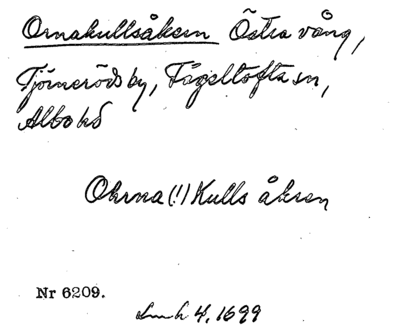 Ornakullsåkern Östra vång,
Tjörneröds by, Fågeltofta sn,
Albo hd
Ohrna (!) Kulls åkren
Nr 6209.
Lmh 4, 1699